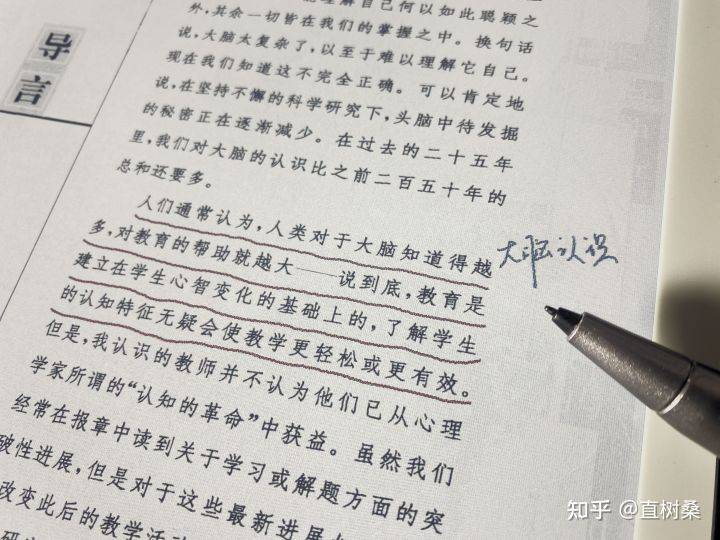 导言
理解自己何以如此聪颖之
外，其余一切皆在我们的掌握之中。换句话
说，大脑太复杂了，以至于难以理解它自己。
现在我们知道这不完全正确。可以肯定地
说，在坚持不懈的科学研究下，头脑中待发掘
的秘密正在逐渐减少。在过去的二十五年
里，我们对大脑的认识比之前二百五十年的
总和还要多。
人们通常认为，人类对于大脑知道得越
多，对教育的帮助就越大——说到底，教育是
建立在学生心智变化的基础上的，了解学生
的认知特征无疑会使教学更轻松或更有效。
但是，我认识的教师并不认为他们已从心理
学家所谓的“认知的革命”中获益。虽然我们
经常在报章中读到关于学习或解题方面的突
破性进展，但是对于这些最新进展
改变此后的教学活动
大脑认识
知乎 @直树桑